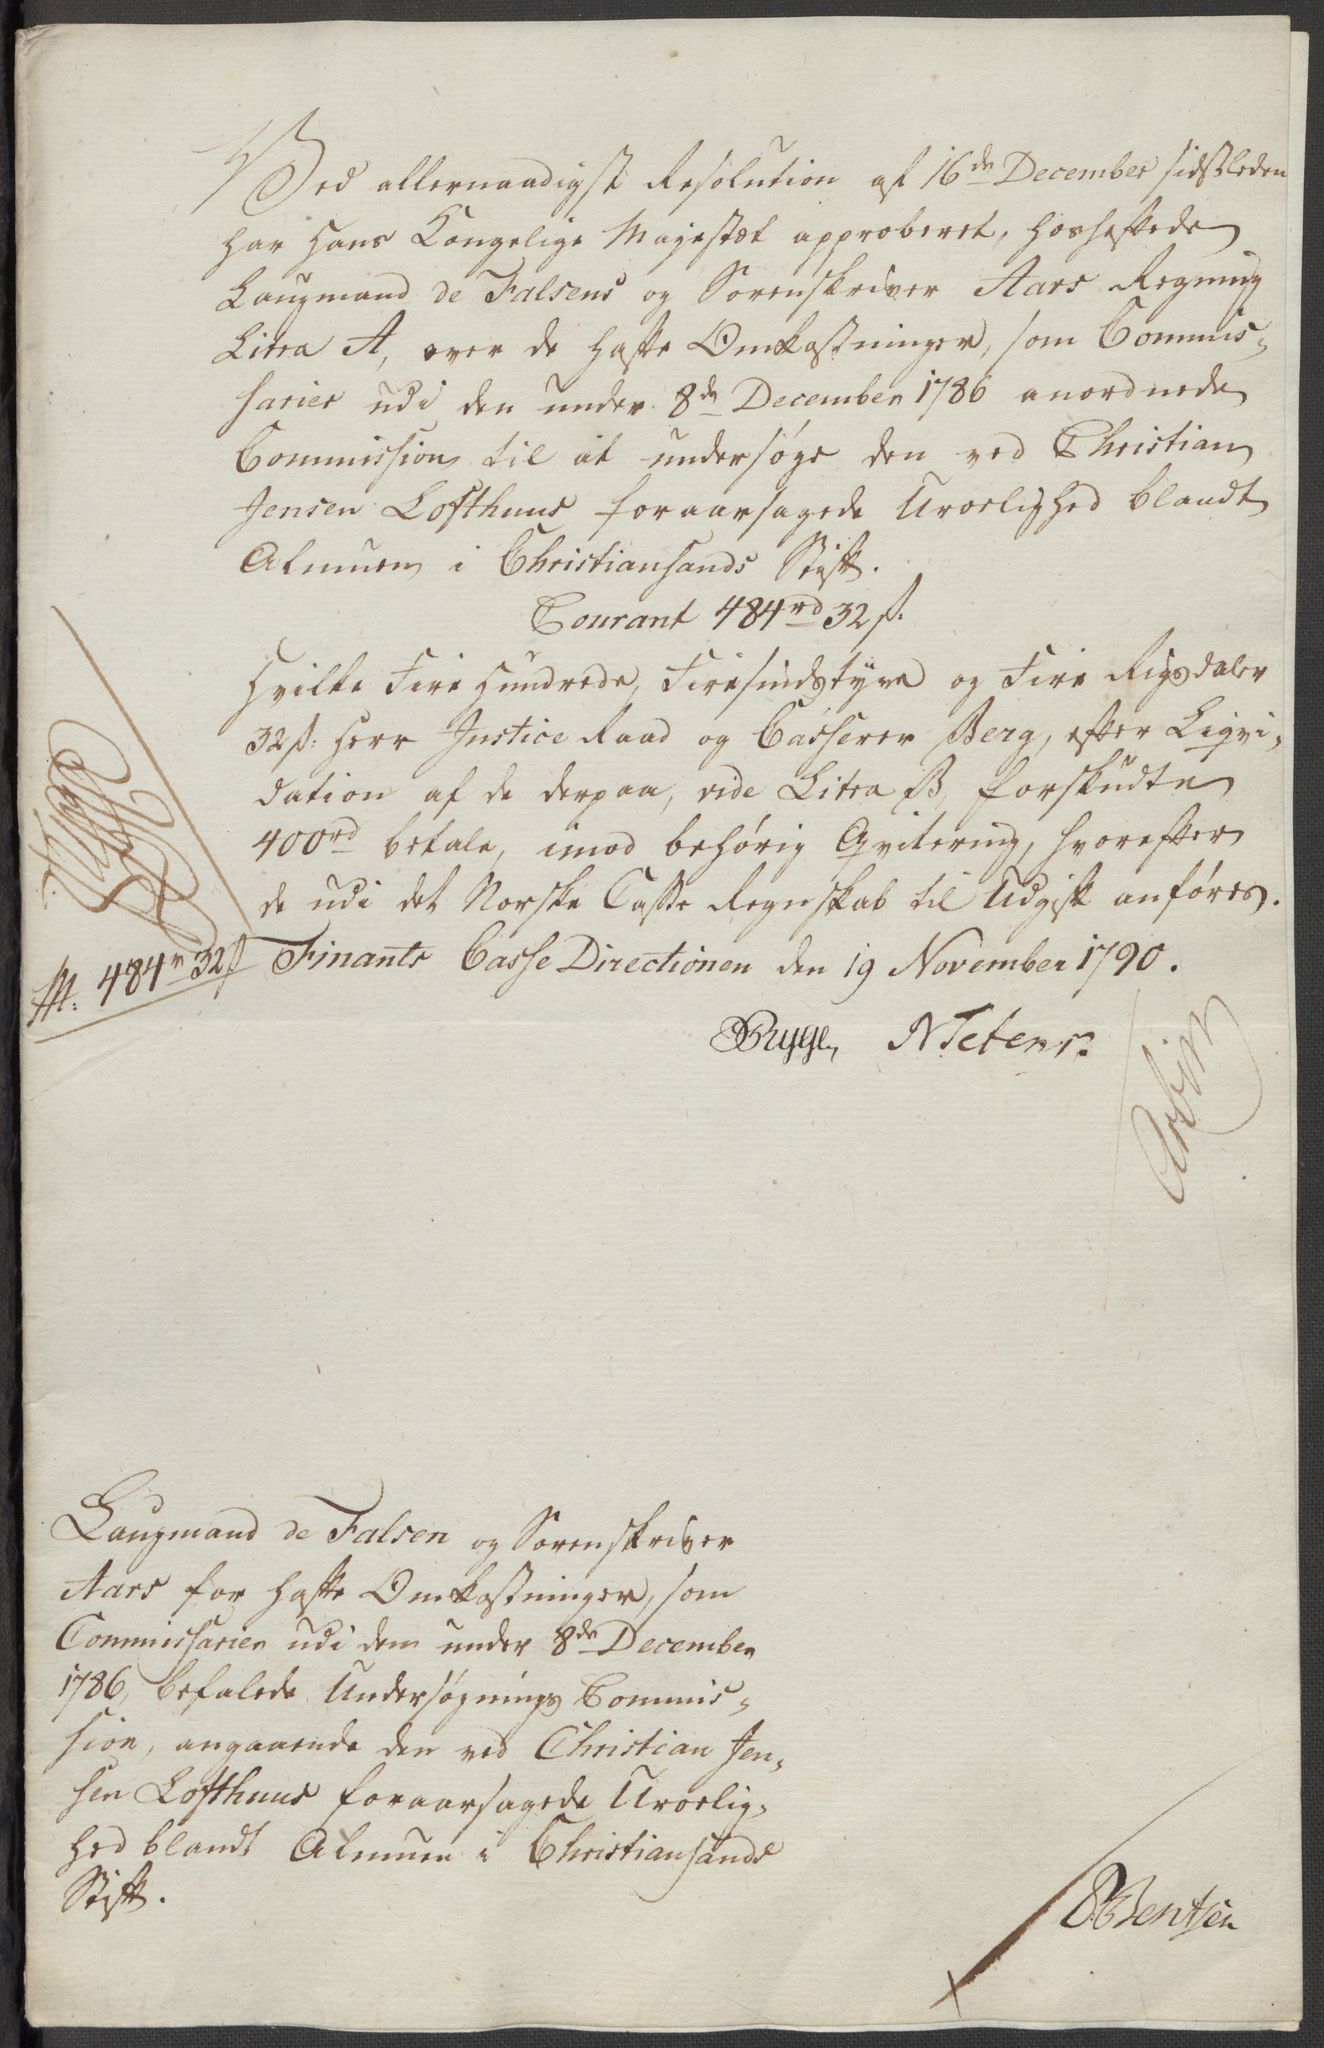 Ved allernaadigst Resolution af 16de December sidstleden
har Hans Kongelige Mayestæt approberet, hosheftede
Laugmand de Falsens og Sorenskriver Aars Regning
Litra A, over de hafte Omkostninger, som Commis-
sarier udi den under 8de December 1786 anordnede
Commission til at undersøge den ved Christian
Jensen Lofthuus foraarsagede Uroelighed blandt
Almuen i Christiansands Stift.
Courant 484rd 32 ß.
Hvilke Fire Hundrede, Firesindstyve og Fire Rigsdaler
32 ß: Herr Justice Raad og Casserer Berg, efter Liqvi-
dation af de derpaa, vide Litra B, forskudte
400rd betale, imod behørig Qvitering, hvorefter
de udi det Norske Casse Regnskab til Udgift anføres.
M. 484r 32ß
Finants Casse Directionen den 19 November 1790.
Rygge, NTetens.
Laugmand de Falsen og Sorenskriver
Aars for hafte Omkostninger, som
Commissarier udi dem under 8de December
1786, befalede Undersøgnings Commis-
sion, angaaende den ved Christian Jen-
sen Lofthuus foraarsagede Uroelig-
hed blandt Almuen i Christiansands
Stift.
Bentsen